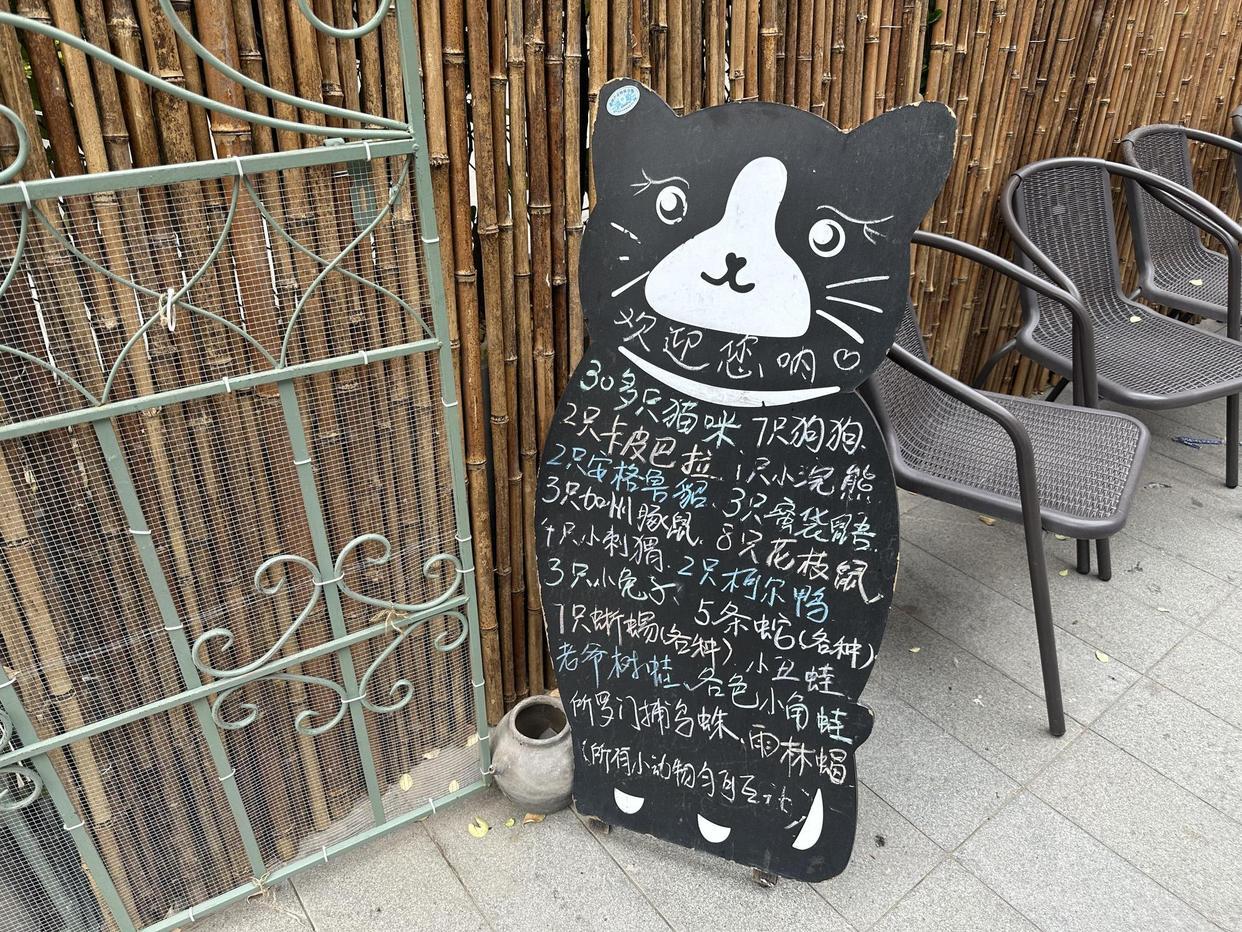 欢迎您呐♡
30多只猫咪 7只狗狗.
2只卡皮巴拉 1只小浣熊
2只安格鲁貂、3只蜜袋鼯.
3只加州豚鼠. 8只花枝鼠、
4只小刺猬. 2只柯尔鸭
3只小兔子、 5条蛇(各种)
7只蜥蜴(各种) 小丑蛙
老爷树蛙、各色小角蛙
所罗门捕鸟蛛、雨林蝎
(所有小动物均可互动)